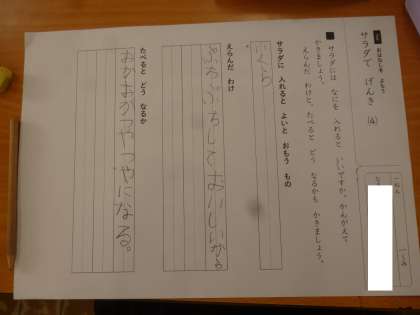 おはなしを よもう
サラダで げんき (4)
サラダには なにを 入れると いいですか。かんがえて
かきましょう。
えらんだ わけと、たべると どう なるかも かきましょう。
サラダに 入れると よいと おもう もの
いくら
えらんだ わけ
ぷちぷちして おいしいから
たべると どう なるか
おかおがつやつやになる。